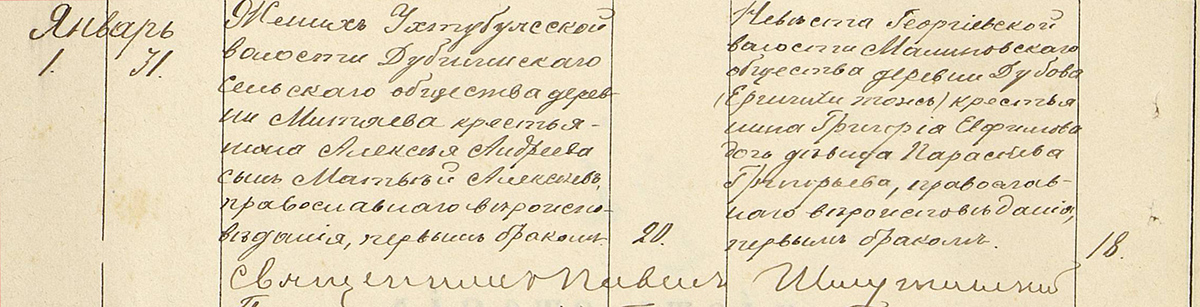 Январь
1. 31.
Женихъ Ухтубужской
волости Дубининскаго
сельскаго общества дерев-
ни Митяева крестья-
нина Алексѣя Андреева
сынъ Матвѣй Алексѣевъ,
православнаго вѣроиспо-
вѣданія, первымъ бракомъ.
20.
Невѣста Георгіевской
волости Малиновскаго
общества деревни Дубова
(тожъ) крестья
нина Григорія Евфимова
дочь дѣвица Параскева
Григорьева, православ-
наго вѣроисповѣданія,
первымъ бракомъ.
18.
Священникъ Павелъ